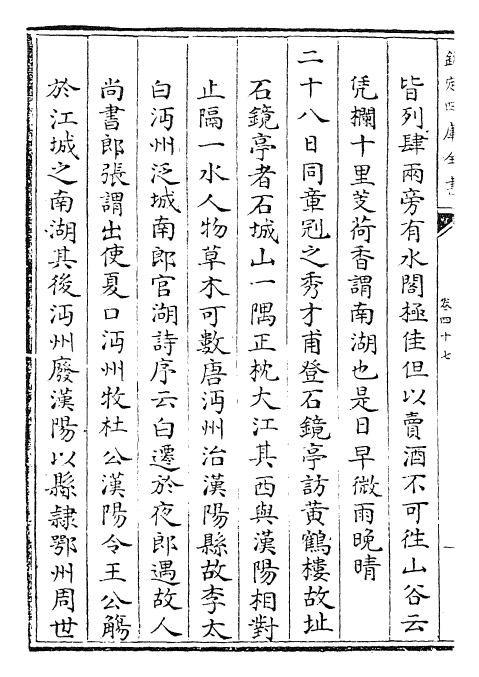 欽定四庫全書
卷四十七
皆列肆兩旁有水閣極佳但以賣酒不可徃山谷云
凭欄十里芰荷香謂南湖也是日早微雨晩晴
二十八日同章冠之秀才甫登石鏡亭訪黃鶴樓故址
石鏡亭者石城山一隅正枕大江其西與漢陽相對
止隔一水人物草木可數唐沔州治漢陽縣故李太
白沔州泛城南郎官湖詩序云白遷於夜郎遇故人
尚書郎張謂出使夏口沔州牧杜公漢陽令王公觴
於江城之南湖其後沔州廢漢陽以縣隸鄂州周世